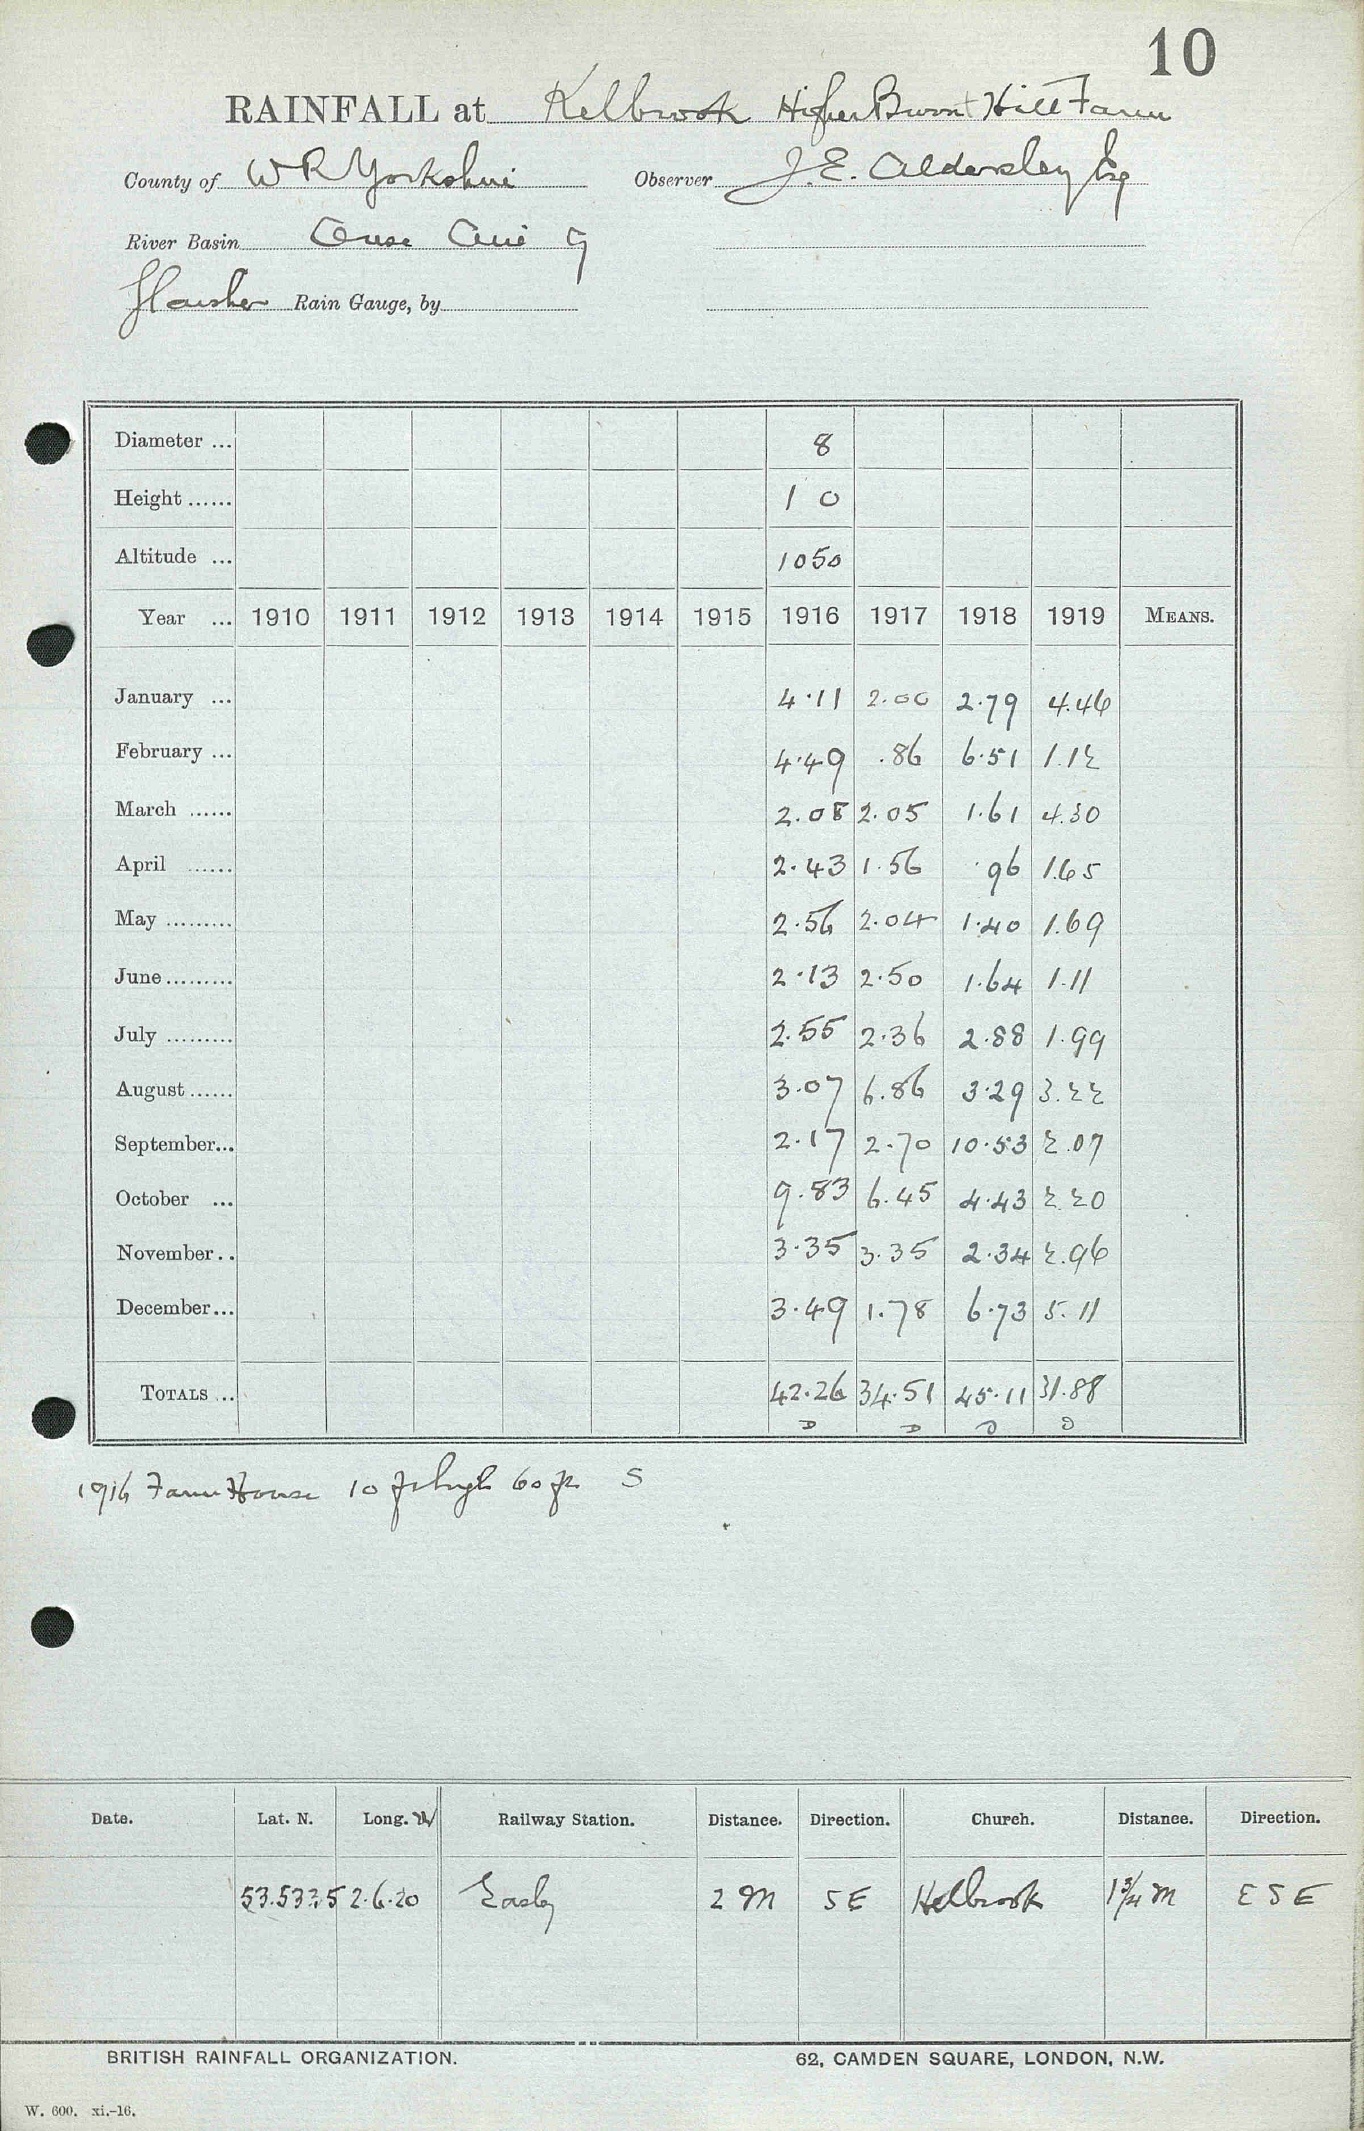 10
RAINFALL at Kelbrook Higher Burnt Hill Farm
County of W R Yorkshire Observer J. E. Aldersley Esq
River Basin Ouse Aire 9
Glaisher Rain Gauge, by
Diameter ... 8
Height ...... 1 0
Altitude ... 1050
Year ... 1910 1911 1912 1913 1914 1915 1916 1917 1918 1919 MEANS.
January ... 4.11 2.00 2.79 4.46
February ... 4.49 .86 6.51 1.12
March ...... 2.08 2.05 1.61 4.30
April ...... 2.43 1.56 .96 1.65
May ......... 2.56 2.04 1.40 1.69
June ......... 2.13 2.50 1.64 1.11
July ......... 2.55 2.36 2.88 1.99
August ...... 3.07 6.86 3.29 3.22
September... 2.17 2.70 10.53 2.07
October ... 9.83 6.45 4.43 2.20
November.. 3.35 3.35 2.34 2.96
December... 3.49 1.78 6.73 5.11
TOTALS ... 42.26 34.51 45.11 31.88
D D D D
1916 Farm House 10 ft high 60 ft S
Date. Lat. N. Long. W Railway Station. Distance. Direction. Church. Distance. Direction.
2.6.20 Earby 2 M SE Kelbrook 1¾ M E S E
BRITISH RAINFALL ORGANIZATION. 62, CAMDEN SQUARE, LONDON, N.W.
W. 600. xi.-16.